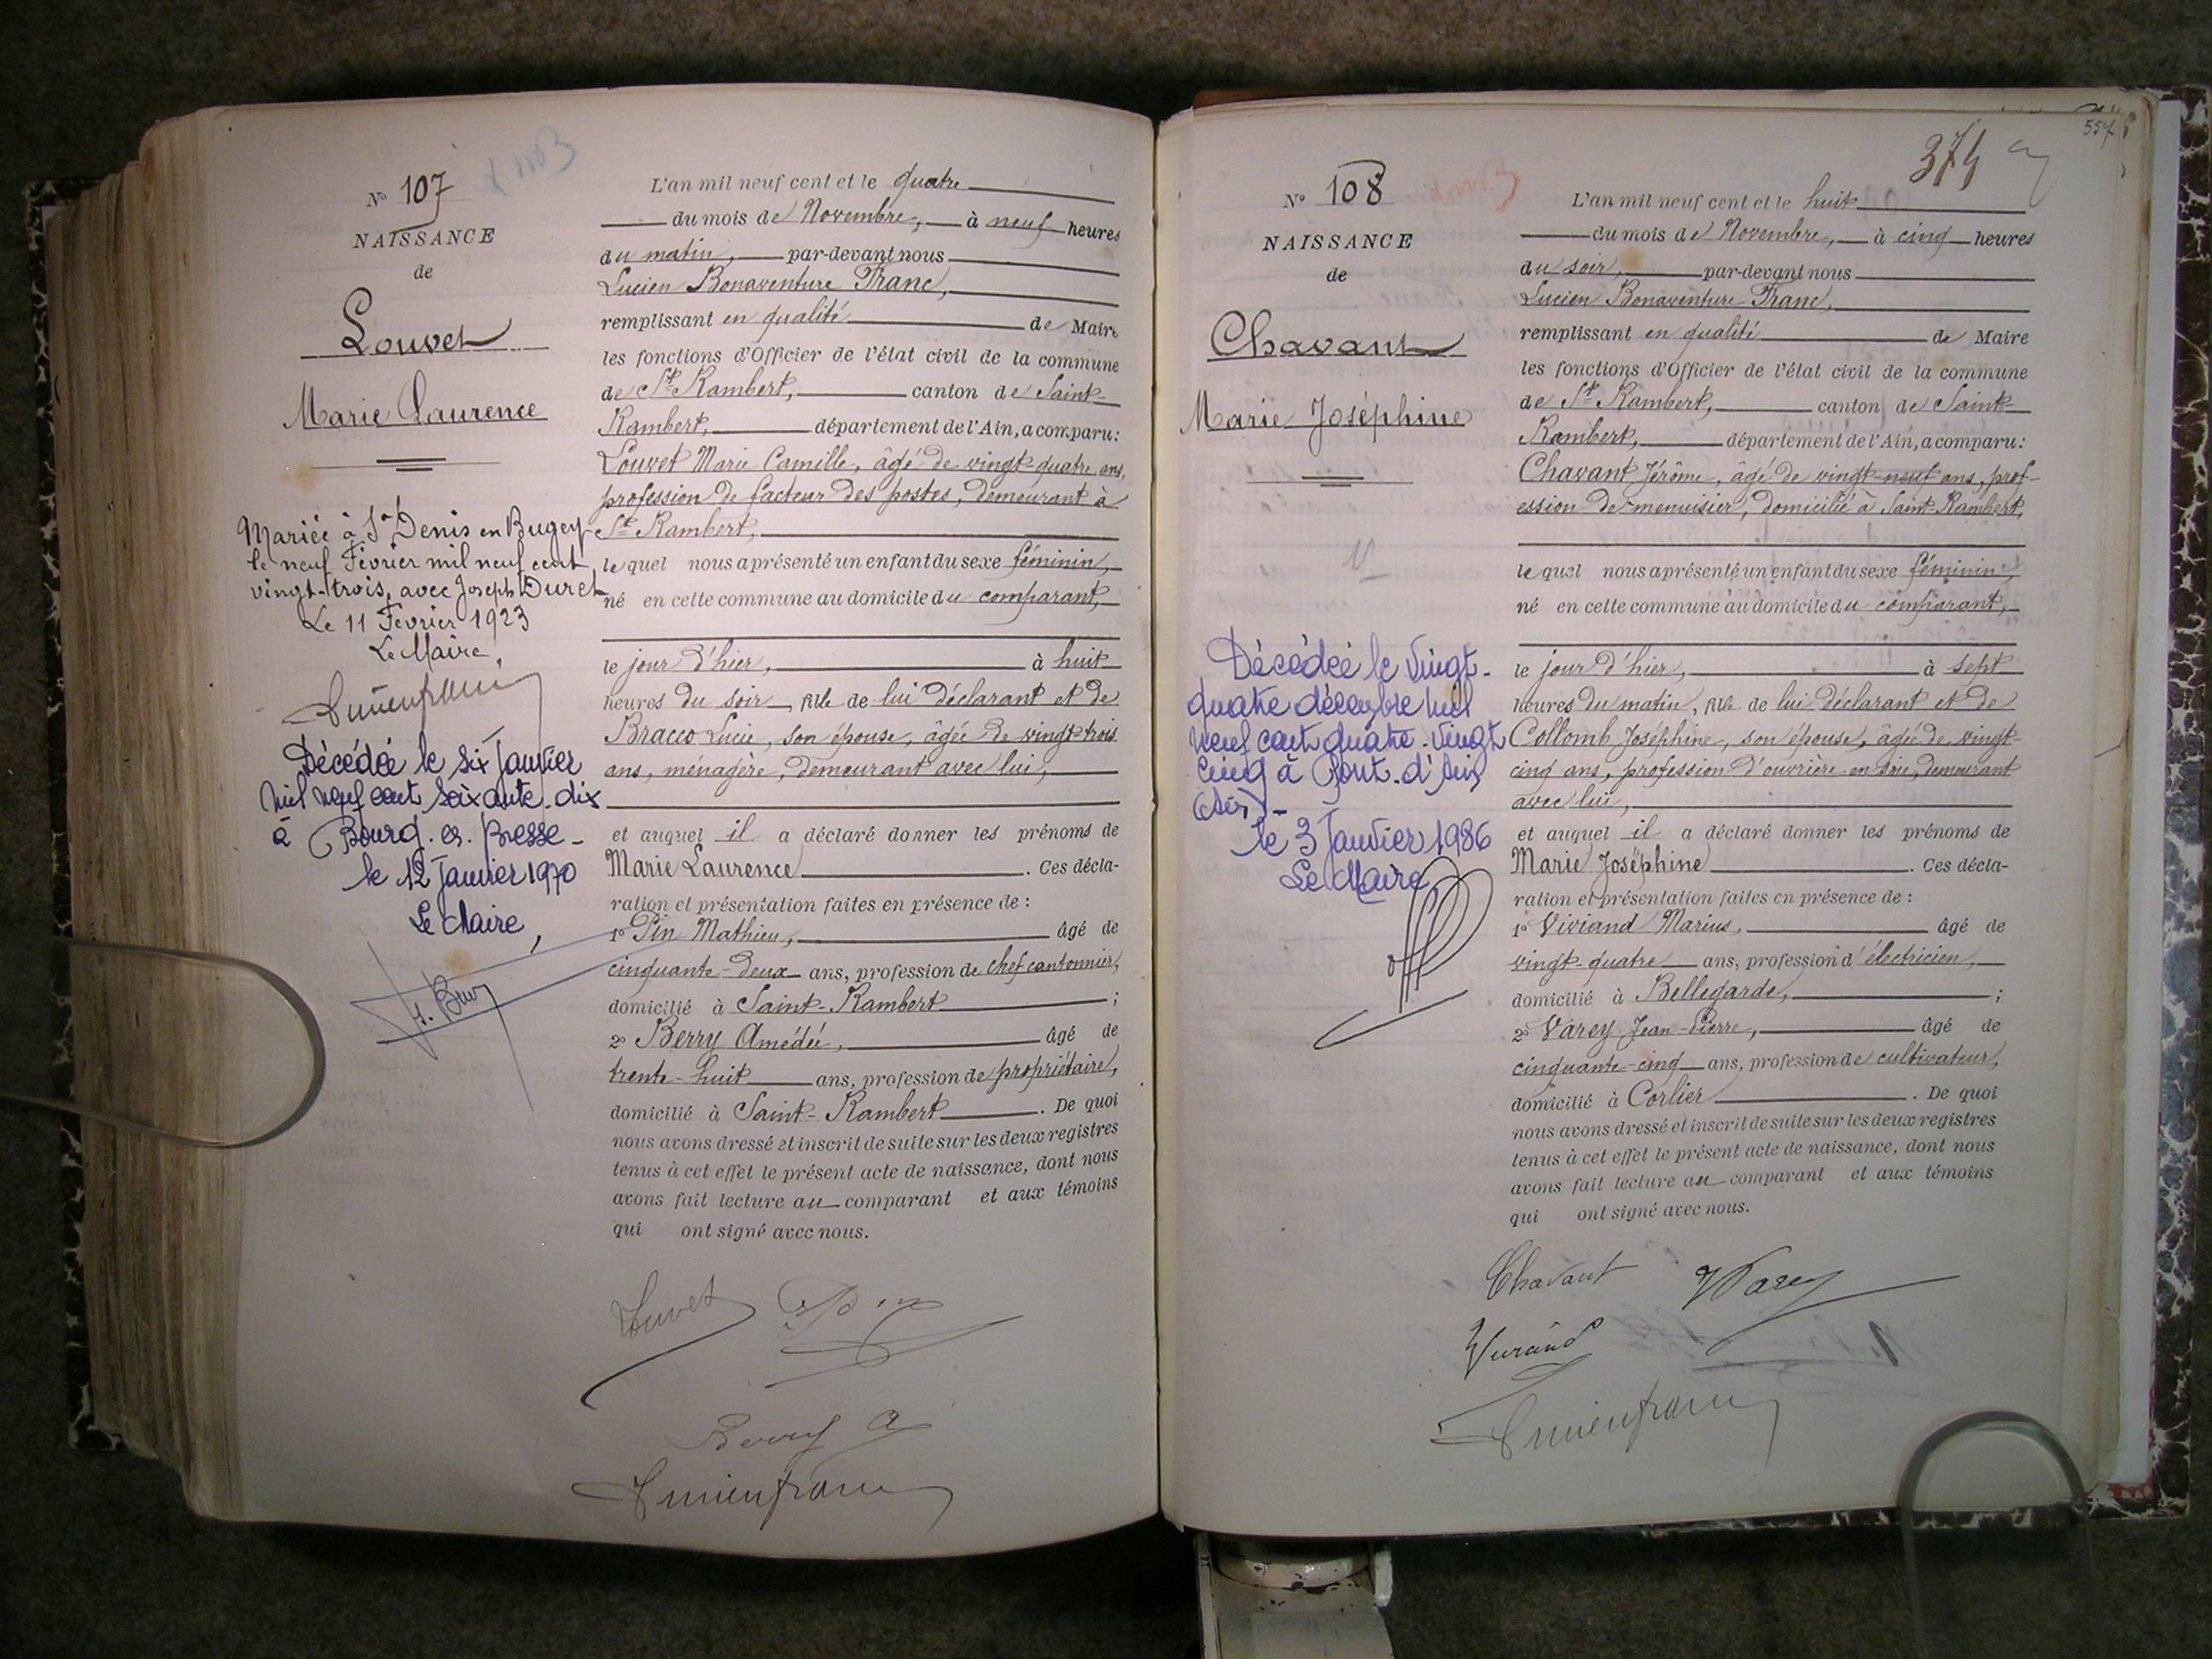 N° 107
NAISSANCE
de
Louvet
Marie Laurence
Mariée à St Denis en Bugey
le neuf Février mil neuf cent
vingt-trois, avec Joseph Duret
Le 11 Février 1923
Le Maire,
Décédée le six Janvier
mil neuf cent soixante-dix
à Bourg-en-Bresse-
le 12 Janvier 1970
Le Maire,
L'an mil neuf cent et le quatre
du mois de Novembre, à neuf heures
du matin, par-devant nous
Lucien Bonaventure Franc,
remplissant en qualité de Maire
les fonctions d'Officier de l'état civil de la commune
de St Rambert, canton de Saint-
Rambert, département de l'Ain, a comparu:
Louvet Marie Camille, âgé de vingt-quatre ans,
profession de facteur des postes, demeurant à
St Rambert,
lequel nous a présenté un enfant du sexe féminin,
né en cette commune au domicile du comparant,
le jour d'hier, à huit
heures du soir, fille de lui déclarant et de
Bracco Lucie, son épouse, âgée de vingt-trois
ans, ménagère, demeurant avec lui,
et auquel il a déclaré donner les prénoms de
Marie Laurence. Ces décla-
ration et présentation faites en présence de :
1° Pin Mathieu, âgé de
cinquante-deux ans, profession de chef cantonnier,
domicilié à Saint-Rambert ;
2° Berry Amédée, âgé de
trente-huit ans, profession de propriétaire,
domicilié à Saint-Rambert. De quoi
nous avons dressé et inscrit de suite sur les deux registres
tenus à cet effet le présent acte de naissance, dont nous
avons fait lecture au comparant et aux témoins
qui ont signé avec nous.
Louvet Pin
Berry A
Lucien franc
374
557
N° 108
NAISSANCE
de
Chavant
Marie Joséphine
Décédée le vingt-
quatre décembre mil
neuf cent quatre-vingt
cinq à Pont-d'Ain
(Ain)-
le 3 Janvier 1986
Le Maire
L'an mil neuf cent et le huit
du mois de Novembre, à cinq heures
du soir, par-devant nous
Lucien Bonaventure Franc,
remplissant en qualité de Maire
les fonctions d'Officier de l'état civil de la commune
de St Rambert, canton de Saint-
Rambert, département de l'Ain, a comparu:
Chavant Jérôme, âgé de vingt-neuf ans, prof-
ession de menuisier, domicilié à Saint-Rambert,
lequel nous a présenté un enfant du sexe féminin,
né en cette commune au domicile du comparant,
le jour d'hier, à sept
heures du matin, fille de lui déclarant et de
Collomb Joséphine, son épouse, âgée de vingt-
cinq ans, profession d'ouvrière en soie, demeurant
avec lui,
et auquel il a déclaré donner les prénoms de
Marie Joséphine. Ces décla-
ration et présentation faites en présence de :
1° Viviand Marius, âgé de
vingt-quatre ans, profession d'électricien,
domicilié à Bellegarde, ;
2° Varey Jean-Pierre, âgé de
cinquante-cinq ans, profession de cultivateur,
domicilié à Corlier. De quoi
nous avons dressé et inscrit de suite sur les deux registres
tenus à cet effet le présent acte de naissance, dont nous
avons fait lecture au comparant et aux témoins
qui ont signé avec nous.
Chavant Varey
Lucien franc